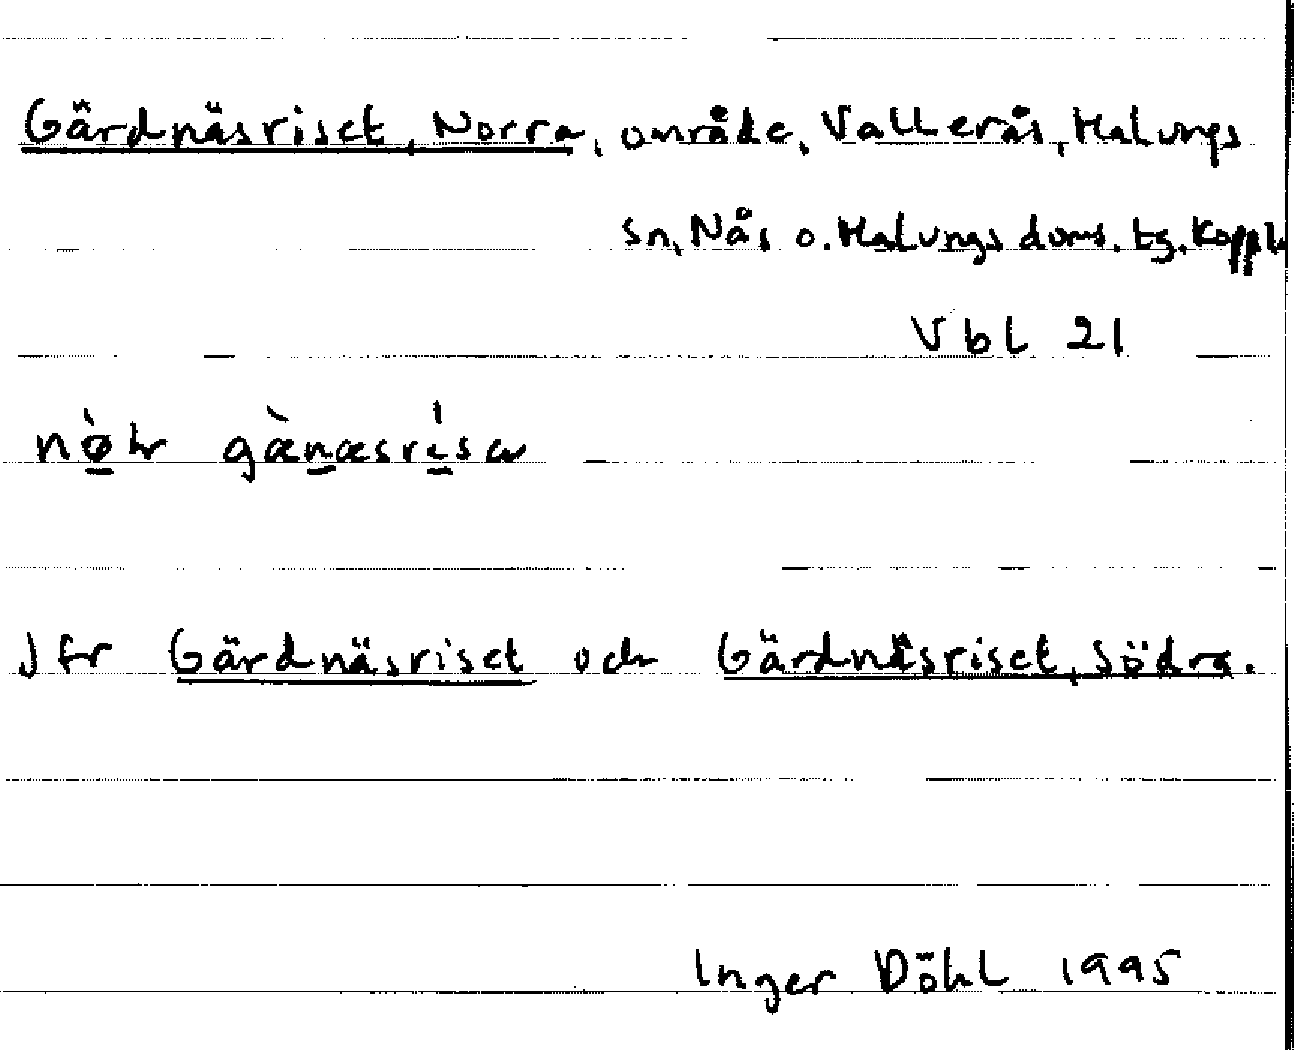 Gärdnäsriset, Norra, område, Vallerås, Malungs
sn, Nås o. Malungs doms. tg. Koppb
Vbl 21
Jfr Gärdnäsriset och Gärdnäsriset, Södra.
Inger Döhl 1995